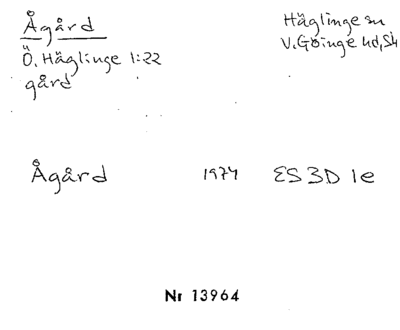 Ågård
Häglinge sn
Ö. Häglinge 1:22
V. Göinge hd, Sk
gård
Ågård 1974 ES 3D 1e
Nr 13964